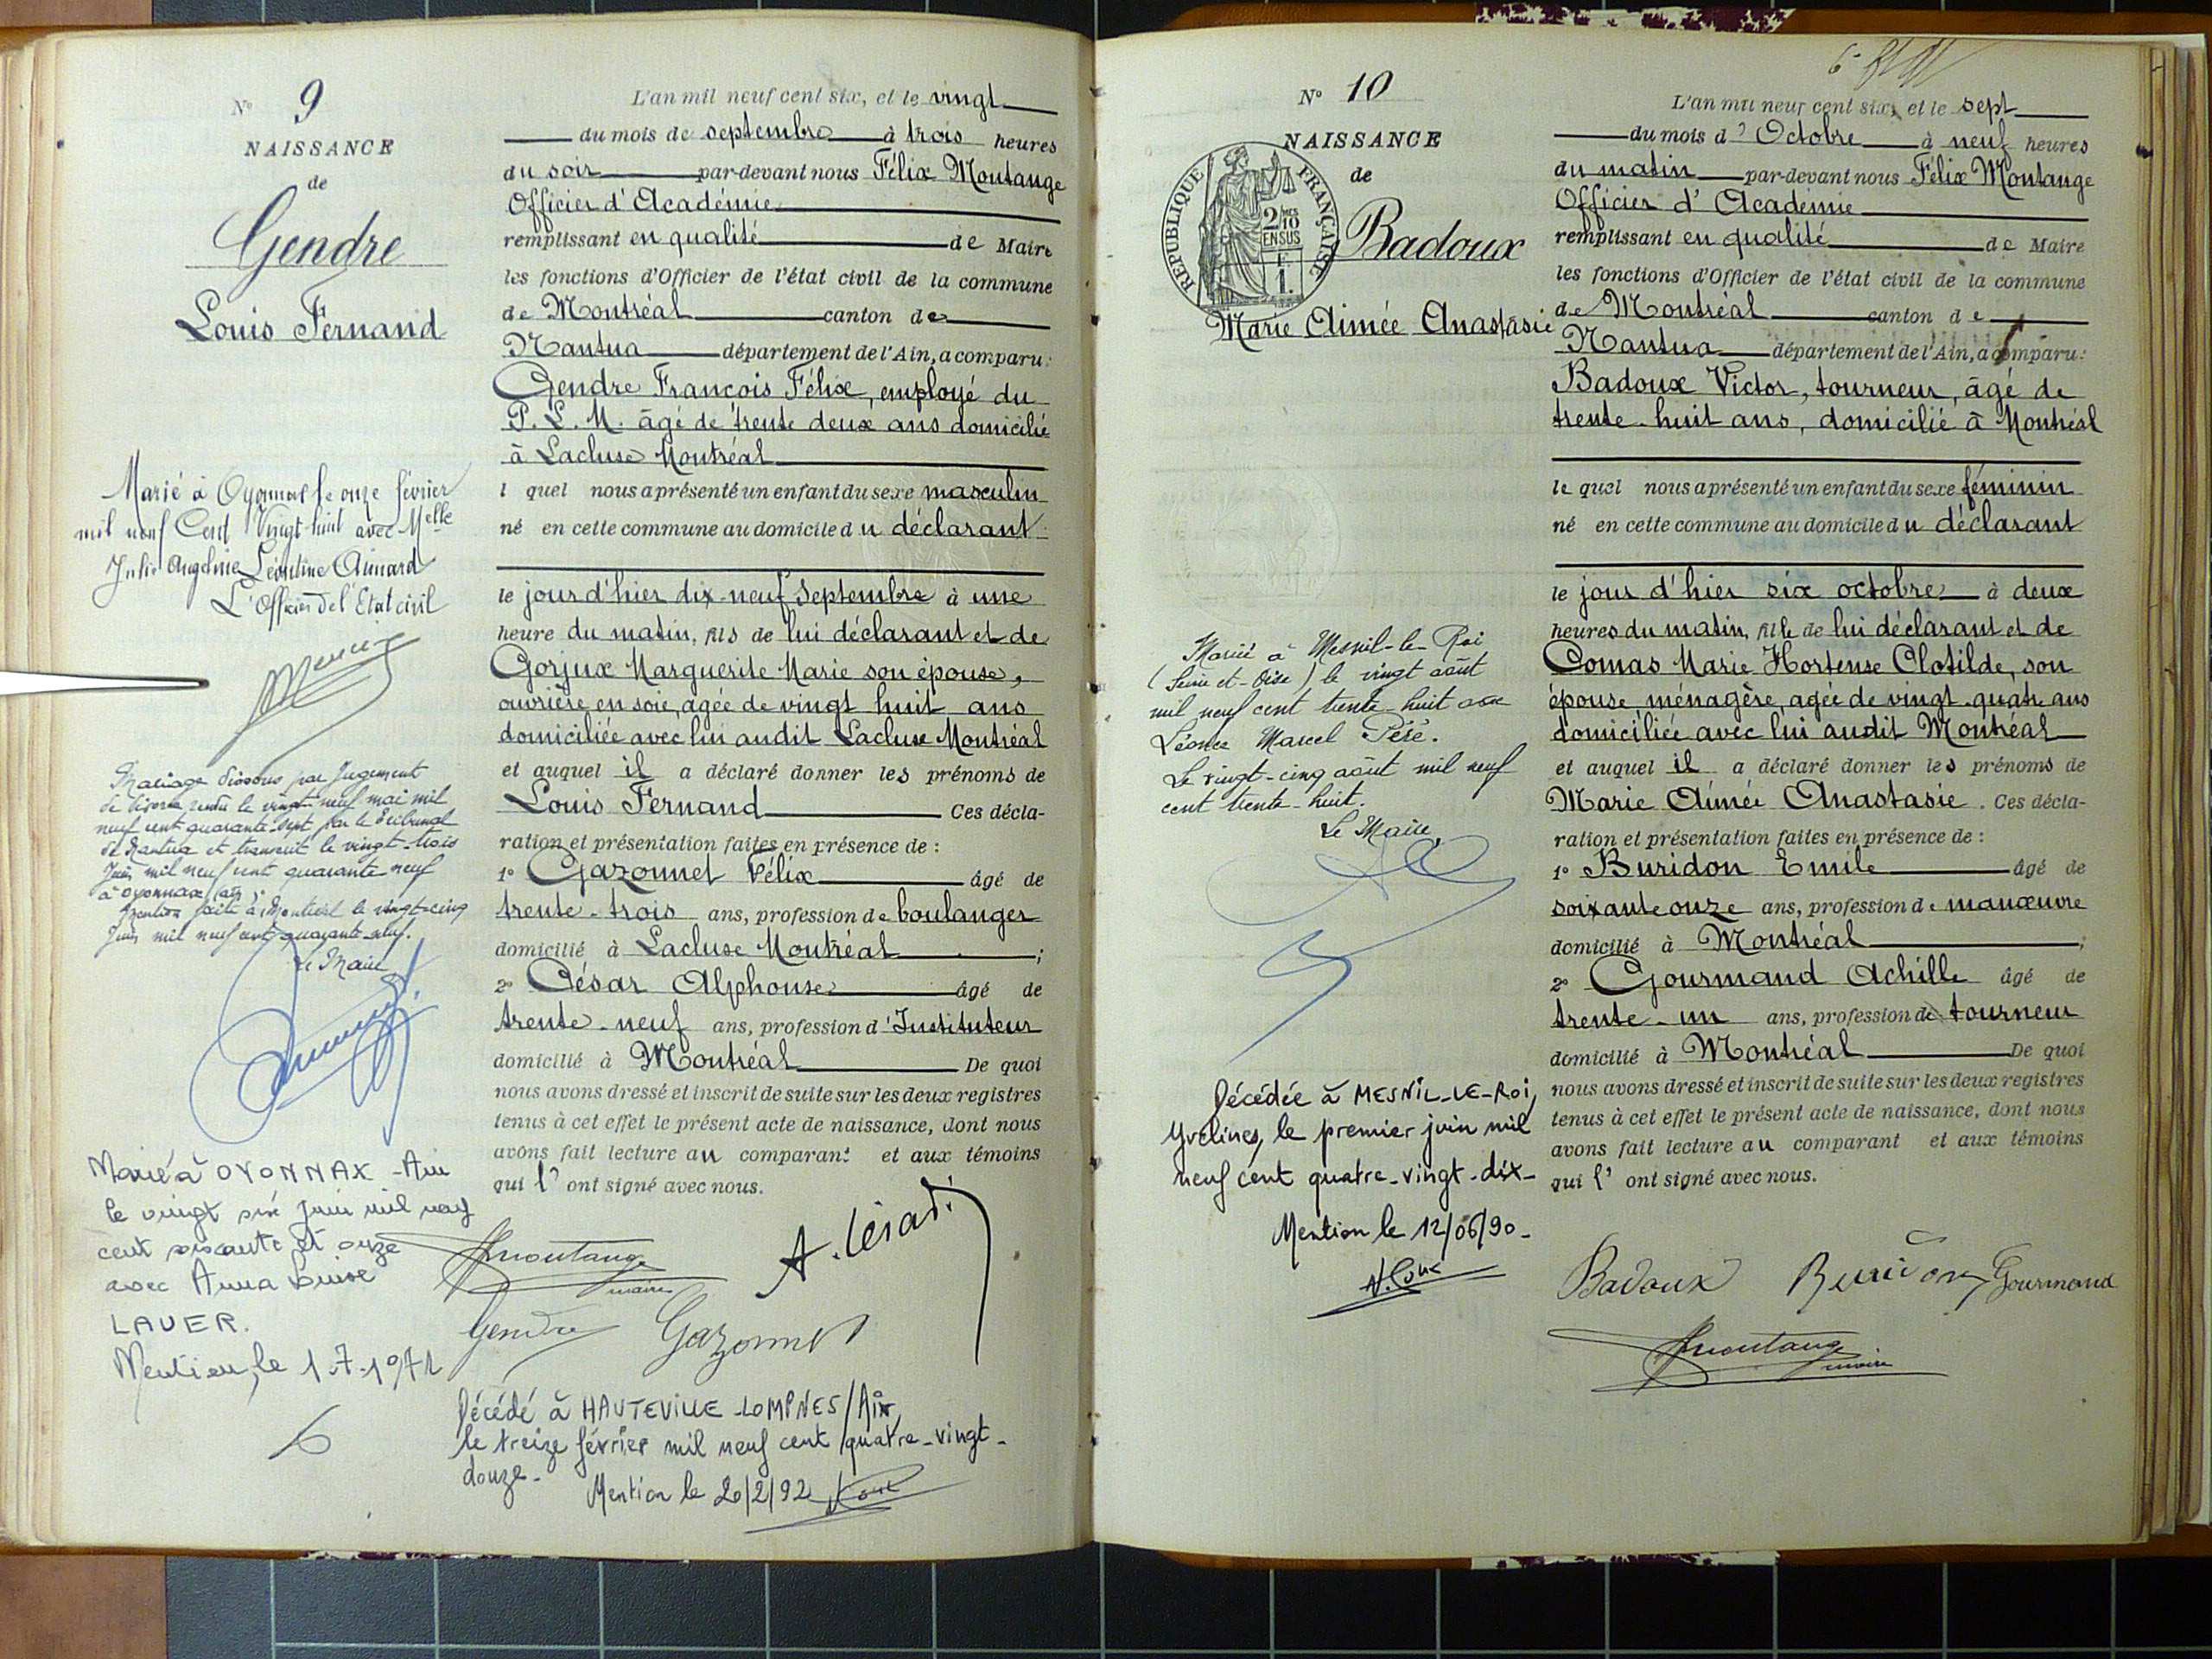 N° 9
NAISSANCE
de
Gendre
Louis Fernand
Marié à Oyonnax le onze février
mil neuf Cent Vingt huit avec Melle
Julie Angeline Léontine Aimard
L'Officier de l'Etat civil
Mariage dissous par Jugement
de divorce rendu le vingt neuf mai mil
neuf cent quarante-sept par le Tribunal
de Nantua et transcrit le vingt-trois
Juin mil neuf cent quarante neuf
à Oyonnax (Ain)
Mention faite à Montréal le vingt-cinq
Juin mil neuf cent quarante-neuf.
Le Maire
Marié à OYONNAX - Ain
le vingt six juin mil neuf
cent soixante et onze
avec Anna Louise
LAUER.
Mention, le 1-7-1971
L'an mil neuf cent six, et le vingt
du mois de septembre à trois heures
du soir par-devant nous Félix Montange
Officier d'Académie
remplissant en qualité de Maire
les fonctions d'Officier de l'état civil de la commune
de Montréal canton de
Nantua département de l'Ain, a comparu:
Gendre François Félix, employé du
P. L. M. âgé de trente deux ans domicilié
à Lacluse Montréal
l quel nous a présenté un enfant du sexe masculin
né en cette commune au domicile du déclarant
le jour d'hier dix-neuf Septembre à une
heure du matin, fils de lui déclarant et de
Gorjux Marguerite Marie son épouse,
ouvrière en soie, agée de vingt huit ans
domiciliée avec lui audit Lacluse Montréal
et auquel il a déclaré donner les prénoms de
Louis Fernand Ces décla-
ration et présentation faites en présence de :
1° Gazonnet Félix âgé de
trente-trois ans, profession de boulanger
domicilié à Lacluse Montréal ;
2° César Alphonse âgé de
trente-neuf ans, profession d'Instituteur
domicilié à Montréal De quoi
nous avons dressé et inscrit de suite sur les deux registres
tenus à cet effet le présent acte de naissance, dont nous
avons fait lecture au comparant et aux témoins
qui l' ont signé avec nous.
Fmontange
maire
A. César
Gendre Gazonnet
Décédé à HAUTEVILLE-LOMPNES/Ain,
le treize février mil neuf cent quatre-vingt-
douze-
Mention le 20/2/92
N° 10
NAISSANCE
de
REPUBLIQUE FRANÇAISE
2/10
EN SUS
F
1.
Badoux
Marie Aimée Anastasie
Marié à Mesnil-le-Roi
(Seine-et-Oise) le vingt août
mil neuf cent trente-huit avec
Léonce Marcel Péré.
Le vingt-cinq août mil neuf
cent trente-huit.
Le Maire,
Décédée à MESNIL-LE-Roi,
Yvelines, le premier juin mil
neuf cent quatre-vingt-dix-
Mention le 12/06/90-
L'an mil neuf cent six, et le sept
du mois d' Octobre à neuf heures
du matin par-devant nous Félix Montange
Officier d'Académie
remplissant en qualité de Maire
les fonctions d'Officier de l'état civil de la commune
de Montréal canton de
Nantua département de l'Ain, a comparu:
Badoux Victor, tourneur, âgé de
trente-huit ans, domicilié à Montréal
le quel nous a présenté un enfant du sexe féminin
né en cette commune au domicile du déclarant
le jour d'hier six octobre à deux
heures du matin, fille de lui déclarant et de
Comas Marie Hortense Clotilde, son
épouse ménagère, agée de vingt-quatre ans
domiciliée avec lui audit Montréal
et auquel il a déclaré donner les prénoms de
Marie Aimée Anastasie. Ces décla-
ration et présentation faites en présence de :
1° Buridon Emile âgé de
soixante onze ans, profession de manœuvre
domicilié à Montréal ;
2° Gourmand Achille âgé de
trente-un ans, profession de tourneur
domicilié à Montréal De quoi
nous avons dressé et inscrit de suite sur les deux registres
tenus à cet effet le présent acte de naissance, dont nous
avons fait lecture au comparant et aux témoins
qui l' ont signé avec nous.
Badoux Buridon Gourmand
Fmontange
maire